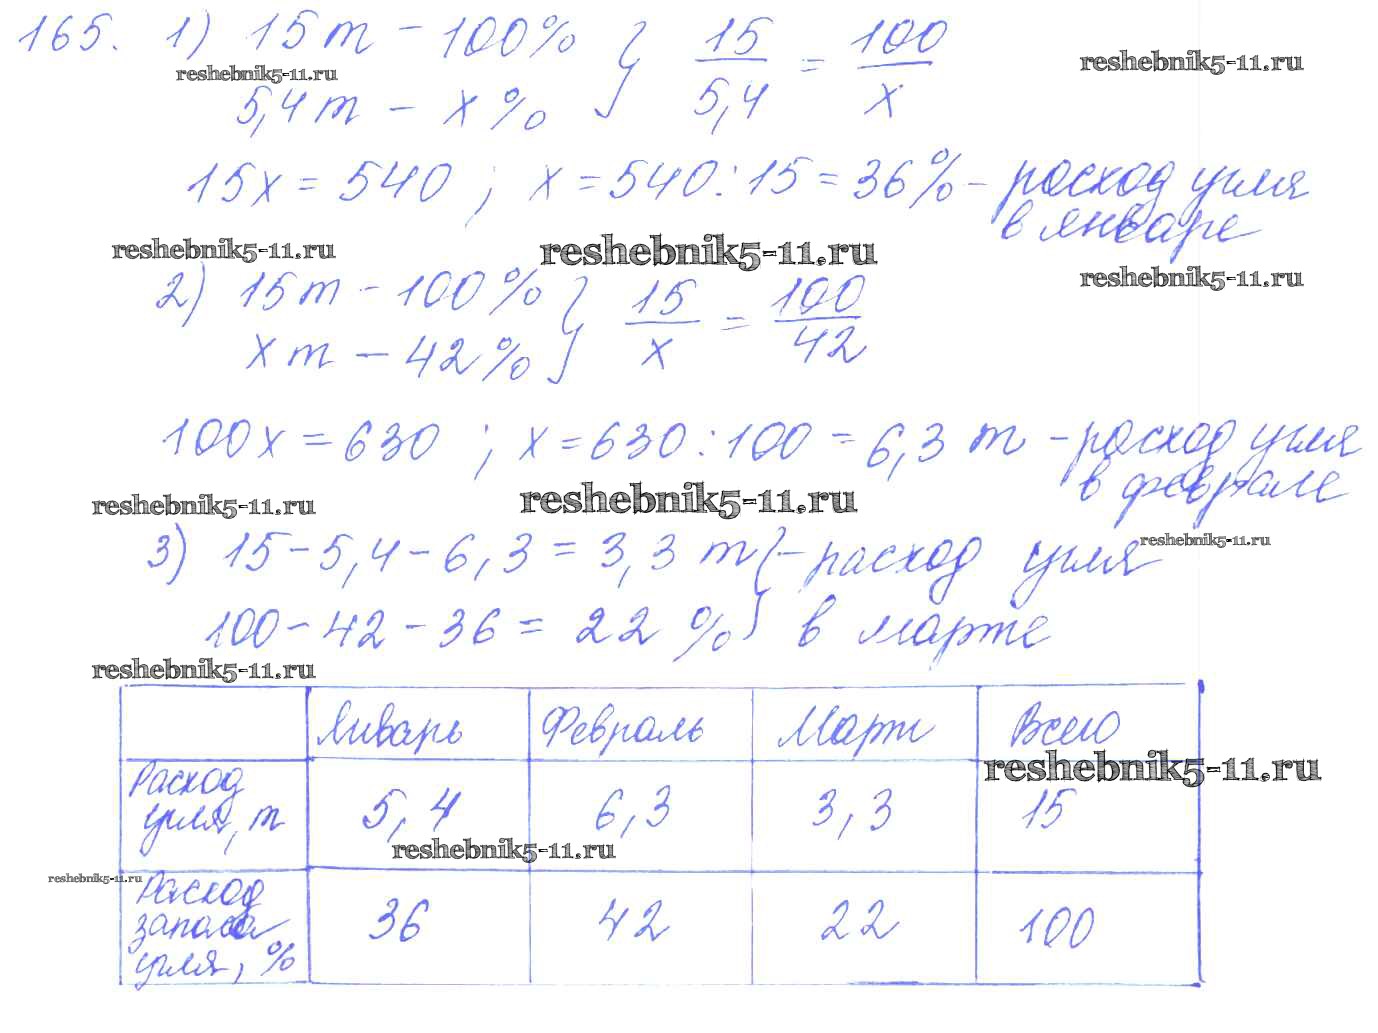 165. 1) 15 т - 100% } 15/5,4 = 100/x
reshebnik5-11.ru
reshebnik5-11.ru
5,4 т - x %
15x = 540 ; x = 540 : 15 = 36% - расход угля
в январе
reshebnik5-11.ru
reshebnik5-11.ru
reshebnik5-11.ru
2) 15 т - 100% } 15/x = 100/42
x т - 42%
100x = 630 ; x = 630 : 100 = 6,3 т - расход угля
в феврале
reshebnik5-11.ru
reshebnik5-11.ru
3) 15 - 5,4 - 6,3 = 3,3 т } - расход угля
reshebnik5-11.ru
100 - 42 - 36 = 22 % в марте
reshebnik5-11.ru
Январь Февраль Март Всего
reshebnik5-11.ru
Расход
угля, т 5,4 6,3 3,3 15
reshebnik5-11.ru
reshebnik5-11.ru
Расход
запаса 36 42 22 100
угля, %